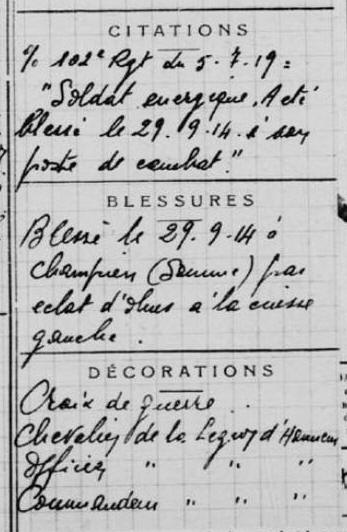 CITATIONS
% 102e Rgt du 5.7.19 =
"Soldat energique. A été
blessé le 29.9.14 à son
poste de combat."
BLESSURES
Blessé le 29.9.14 à
Champien (Somme) par
eclat d'obus a la cuisse
gauche.
DÉCORATIONS
Croix de guerre
Chevalier de la Legion d'Honneur
Officier " " "
Commandeur " " "